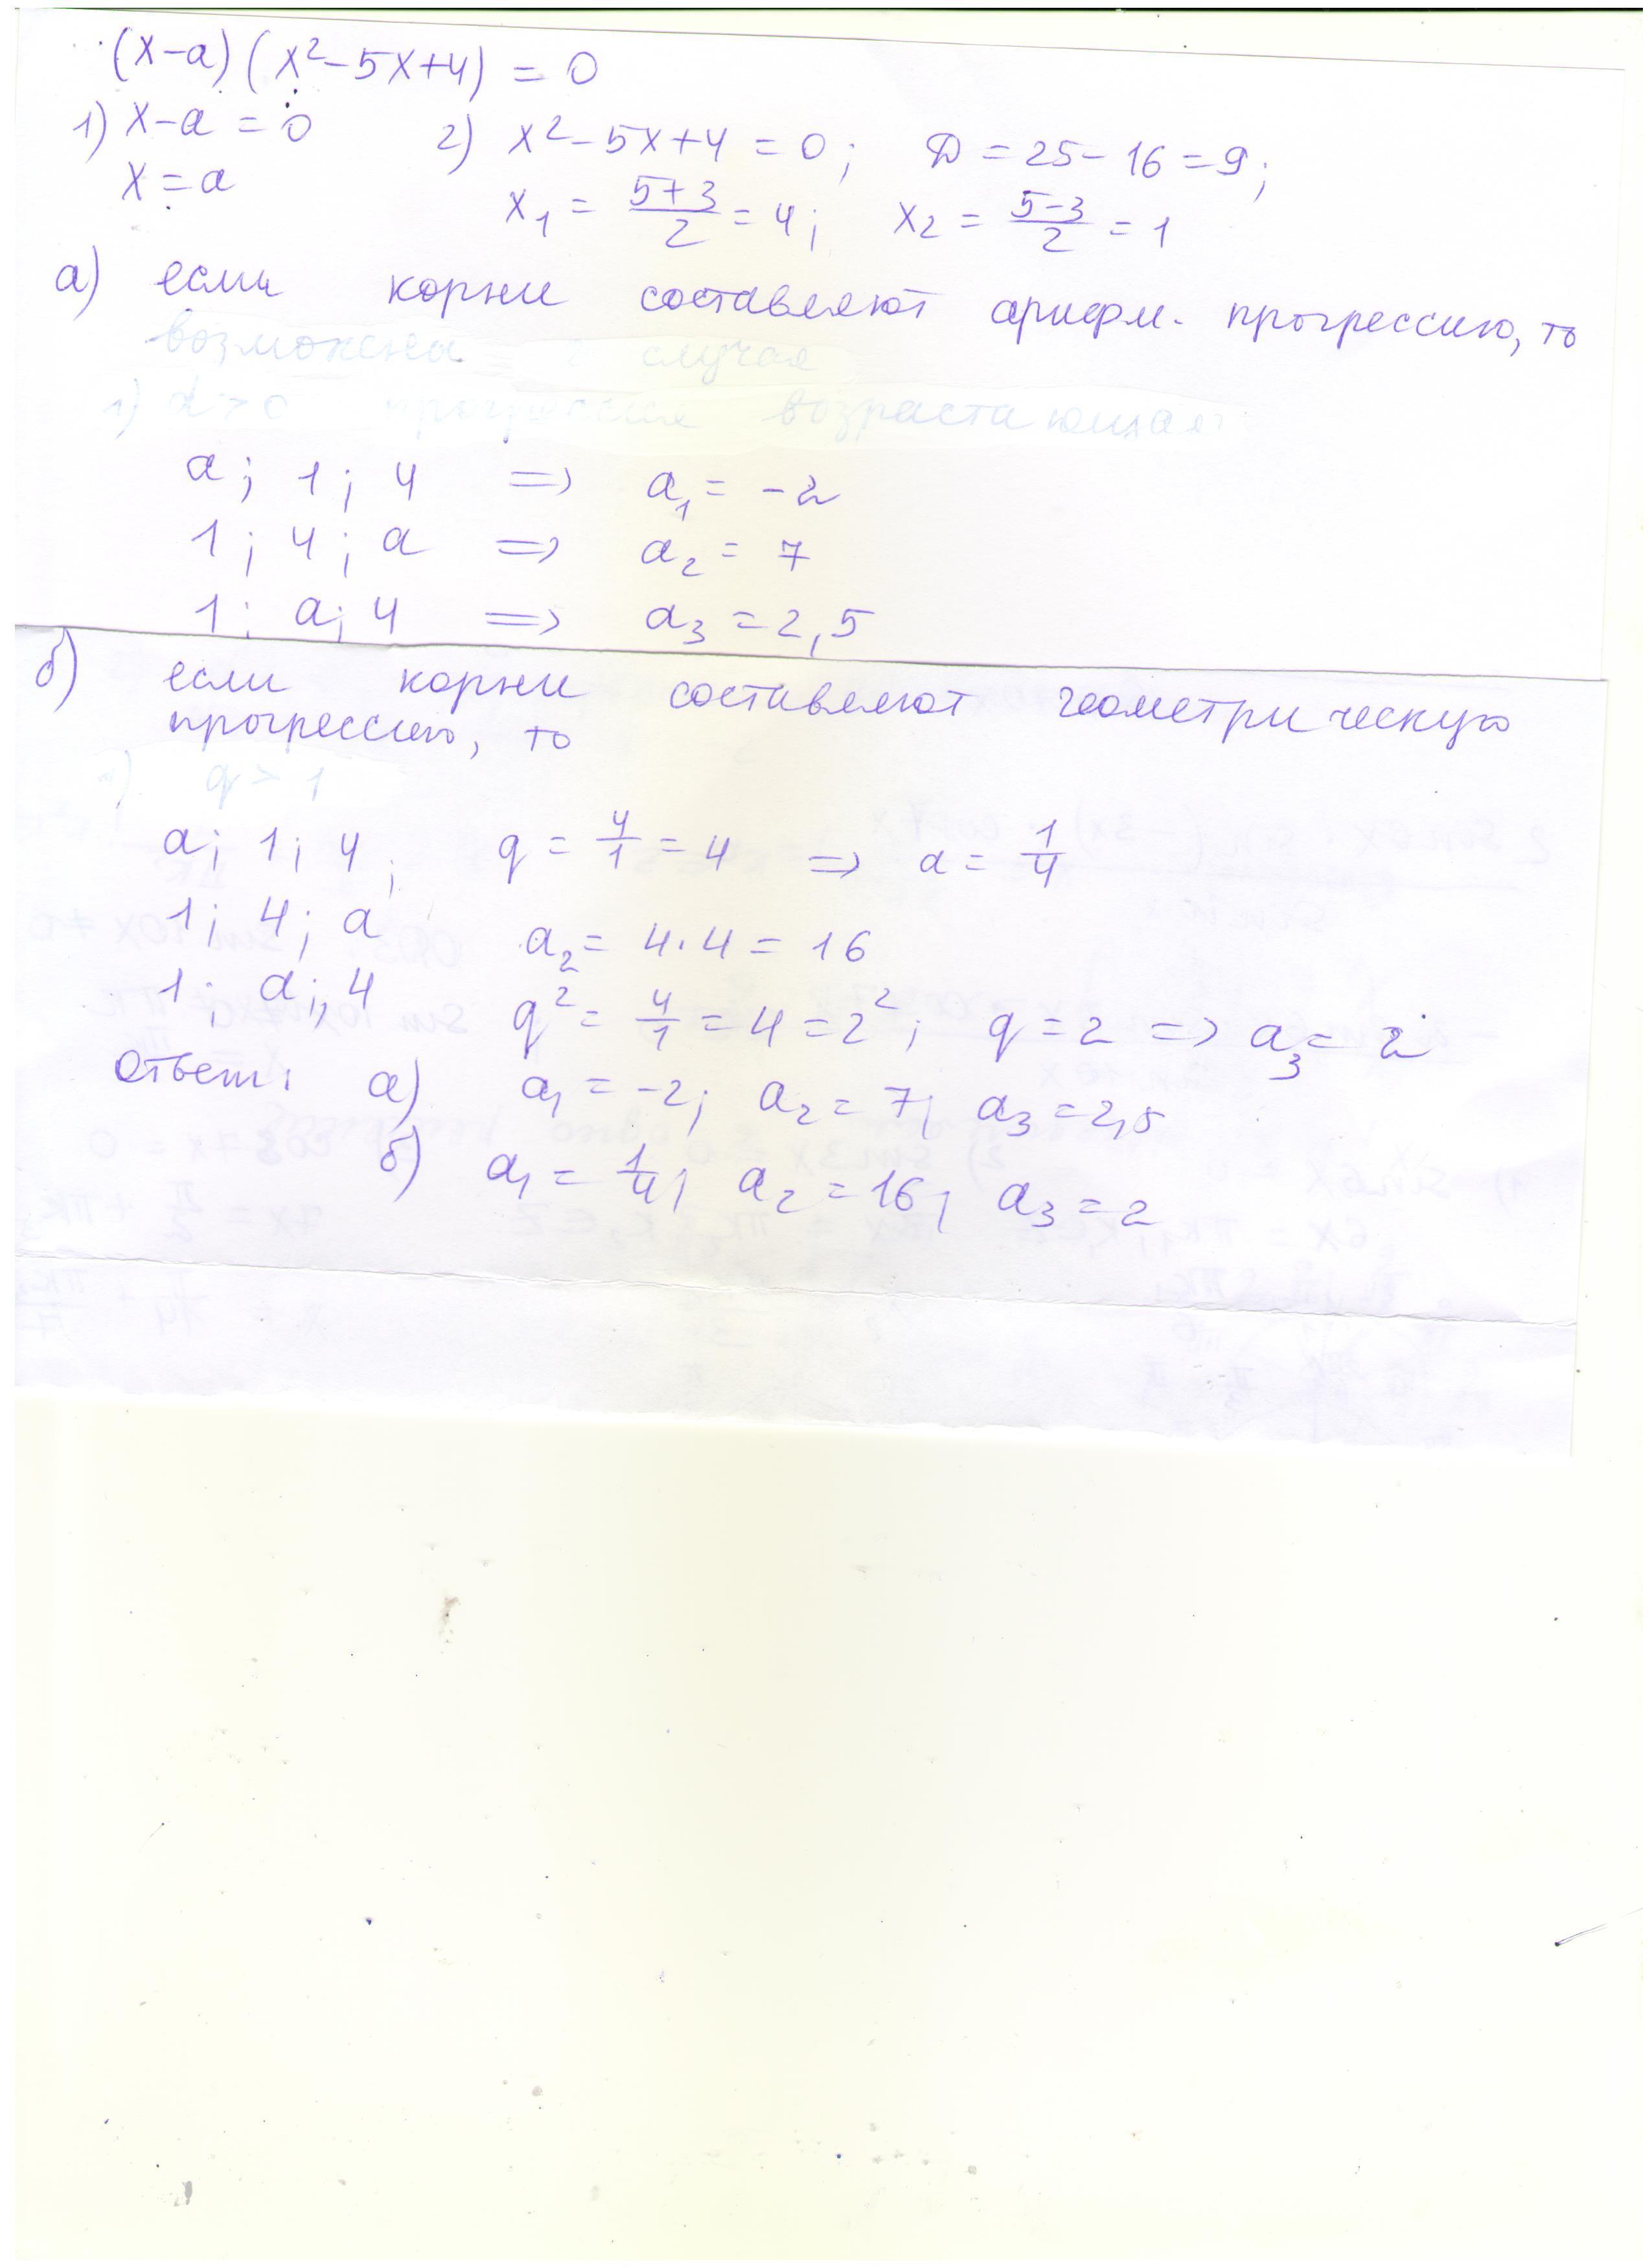 (x-a)(x²-5x+4) = 0
1) x-a = 0 2) x²-5x+4 = 0; D = 25-16 = 9;
x = a x₁ = (5+3)/2 = 4; x₂ = (5-3)/2 = 1
а) если корни составляют арифм. прогрессию, то
возможны 2 случая
1) d > 0 прогрессия возрастающая
a; 1; 4 => a₁ = -2
1; 4; a => a₂ = 7
1; a; 4 => a₃ = 2,5
б) если корни составляют геометрическую
прогрессию, то
1) q > 1
a; 1; 4; q = 4/1 = 4 => a = 1/4
1; 4; a a₂ = 4·4 = 16
1; a; 4 q² = 4/1 = 4 = 2²; q = 2 => a₃ = 2
Ответ: а) a₁ = -2; a₂ = 7; a₃ = 2,5
б) a₁ = 1/4; a₂ = 16; a₃ = 2